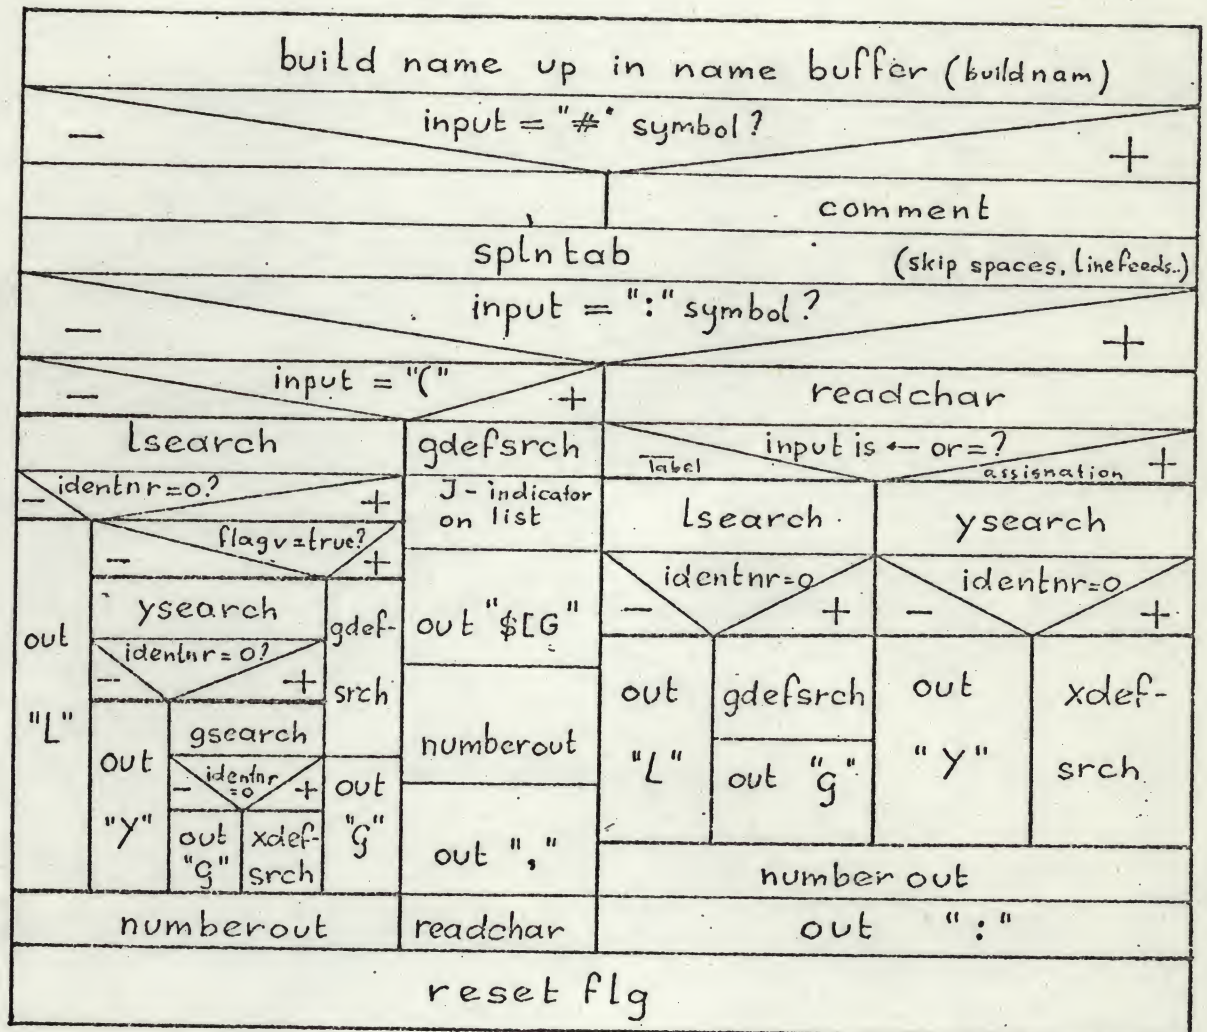 build name up in name buffer (buildnam)
input = "#" symbol?
- +
comment
splntab (skip spaces, linefeeds..)
input = ":" symbol?
- +
input = "("
- +
readchar
lsearch
gdefsrch
input is ← or =?
- label assignation +
identnr=0?
- +
J-indicator
on list
lsearch
ysearch
flagv=true?
- +
identnr=0
- +
identnr=0
- +
out
"L"
ysearch
gdef-
srch
out "$[G"
identnr=0?
- +
out
"L"
gdefsrch
out "G"
out
"Y"
xdef-
srch
out
"Y"
gsearch
numberout
identnr
=0
- +
out
"G"
out
"G"
xdef-
srch
out ","
number out
numberout
readchar
out ":"
reset flg